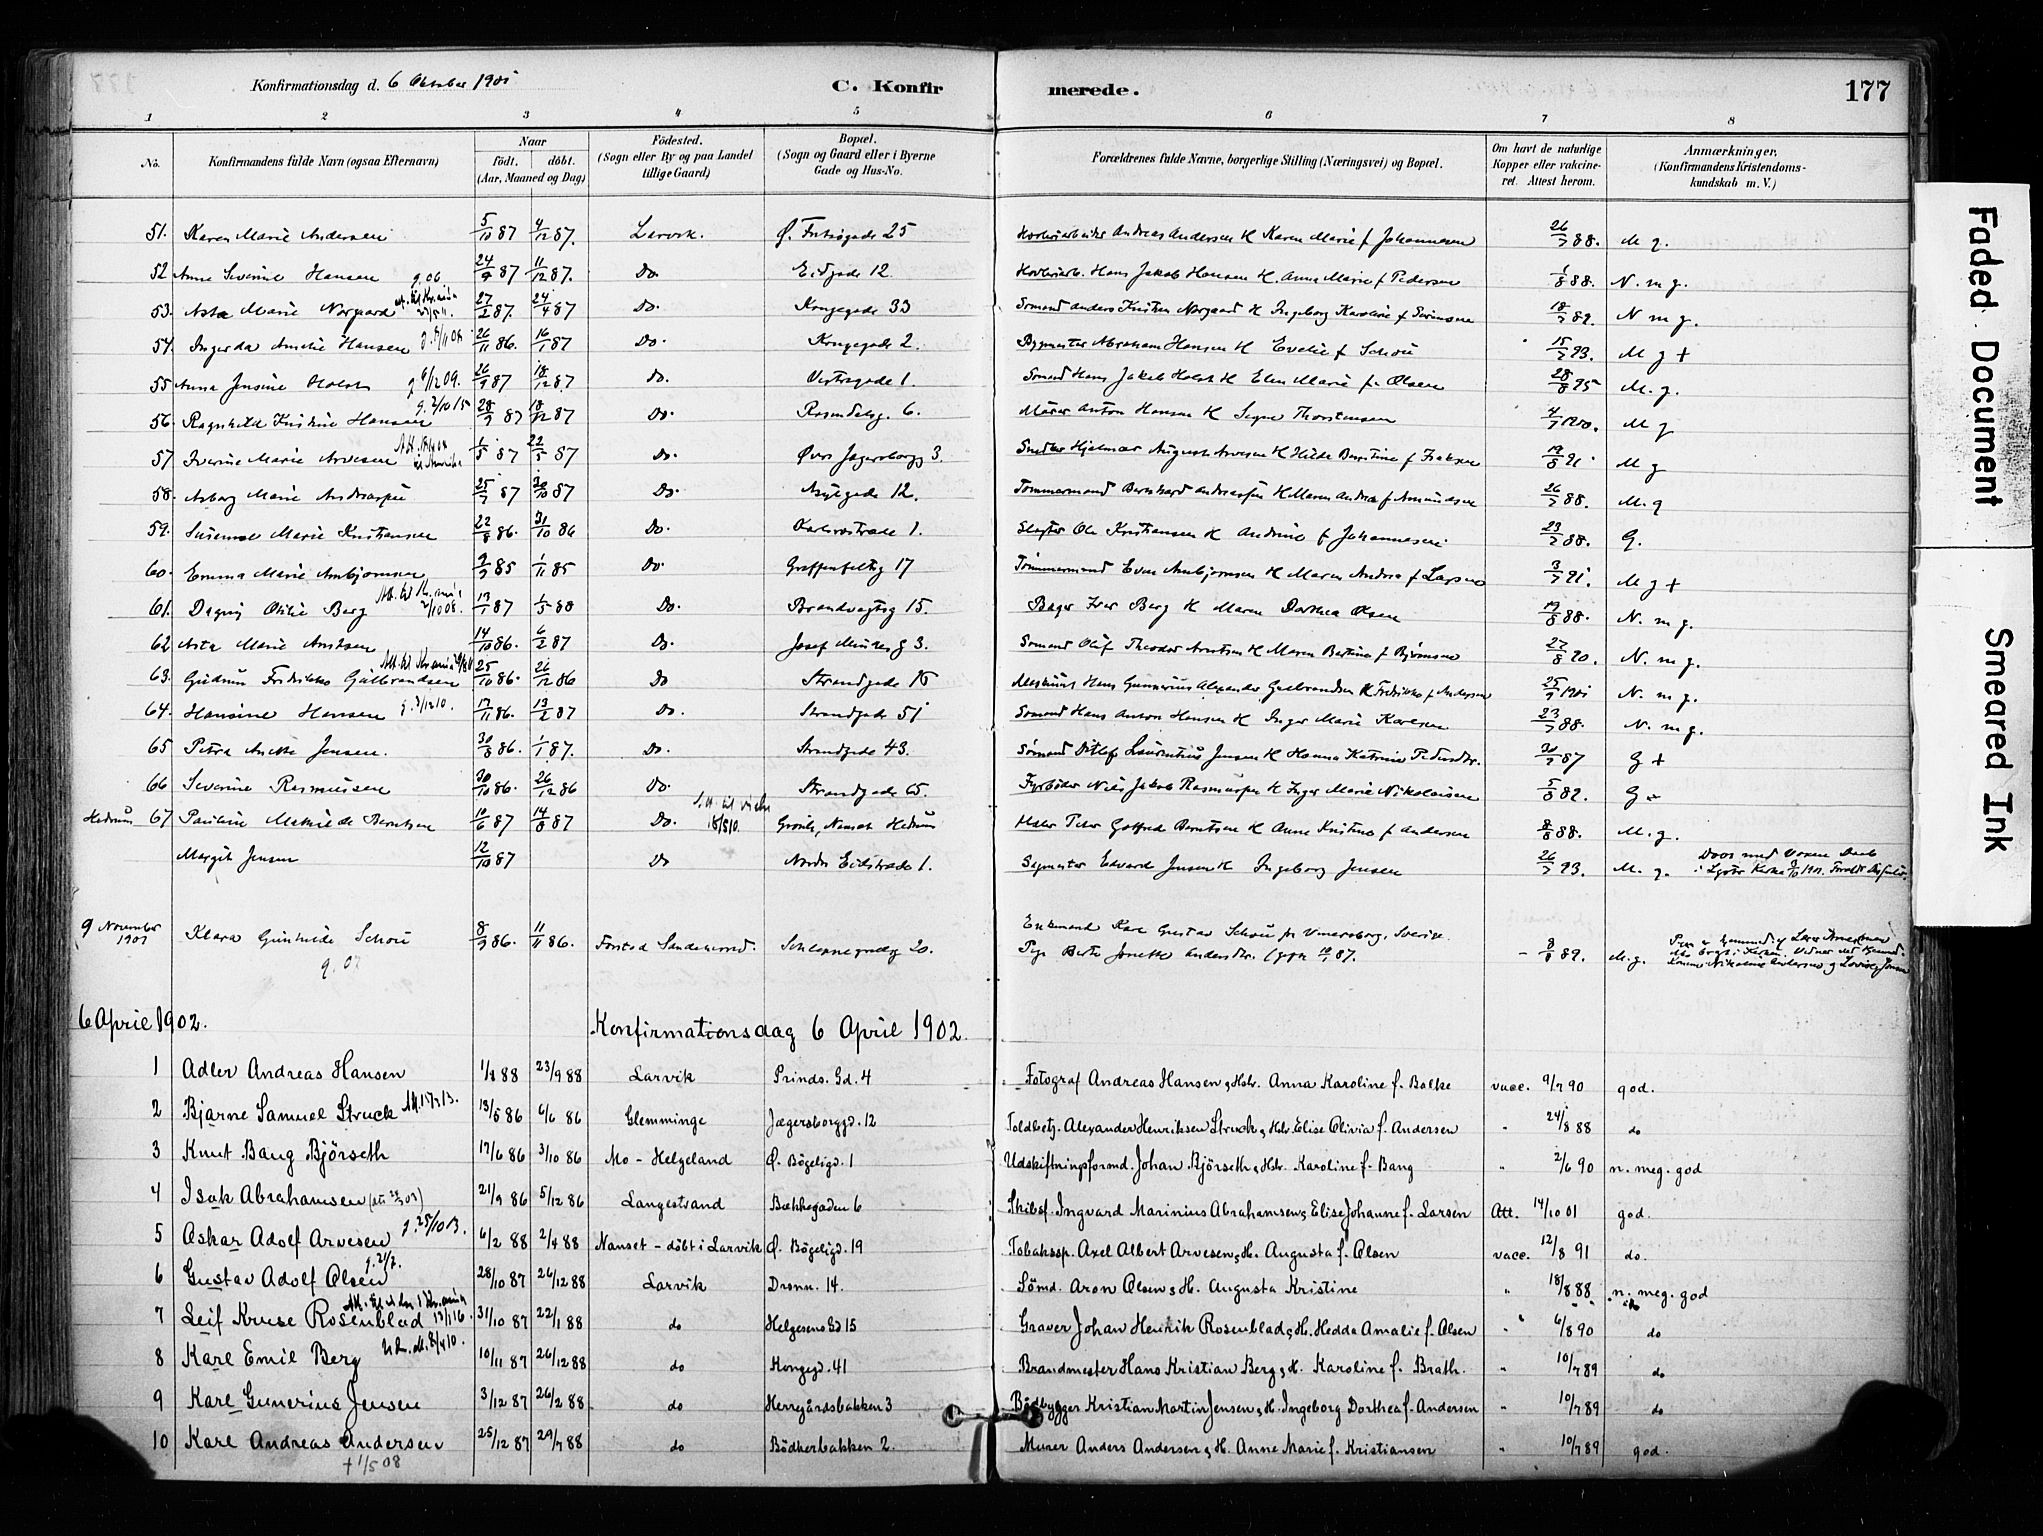 Konfirmationsdag d. 6 Oktober 1901
C. Konfirmerede.
177
1 2 3 4 5 6 7 8
No. Konfirmandens fulde Navn (ogsaa Efternavn) Naar født. døbt. (Aar, Maaned og Dag) Fødested. (Sogn eller By og paa Landet tillige Gaard) Bopæl. (Sogn og Gaard eller i Byerne Gade og Hus-No. Forældrenes fulde Navne, borgerlige Stilling (Næringsvei) og Bopæl. Om havt de naturlige Kopper eller vakcineret. Attest herom. Anmærkninger. (Konfirmandens Kristendomskundskab m. V.)
51. Karen Marie Andersen 5/10 87 4/12 87. Larvik. Ø. Fritzøgade 25 Andreas Andersen H Karen Marie f Johannesen 26/7 88. M g.
52 Anne Severine Hansen g. 06 24/9 87 11/12 87. Do. Eidgade 12. Hans Jakob Hansen H. Anne Marie f Pedersen 1/8 88. N. m g.
53. Asta Marie Norgaard 27/2 87. 24/4 87 Do. Kongegade 33 Sømand Anders Kristian Norgaard H Ingeborg Karoline f 18/7 89. N m g.
54. Ingerda Amelie Hansen 26/11 86. 16/1 87 Do. Kongegade 2. Bygmester Abraham Hansen H Eveline f Schou 15/7 93. M g +
55 Anna Jensine Holst g 6/12 09. 26/9 87 18/12 87 Do. Vestregade 1. Sømand Hans Jakob Holst H Elen Marie f. Olsen 28/8 95 M. g.
56. Ragnhild Kristine Hansen g. 2/10 15 28/9 87 18/12 87 Do. 6. Murer Anton Hansen H Signe Thorstensen 4/7 1900. M g
57 Iverine Marie Arvesen 1/5 87 22/5 87 Do. Øvre Jægersborgg 3. Snedker Hjalmar August Arvesen H Hilde Berntine f Isaksen 19/8 91 M g
58. Asborg Marie Andreassen 25/7 87 30/10 87 Do. Asylgade 12. Tømmermand Bernhard Andreassen H Maren Andrea f Amundsen 26/7 88. M. g
59. Susanne Marie Kristiansen 22/8 86. 31/10 86 Do. Karlsrostræde 1. Slagter Ole Kristiansen H Andrine f Johannesen 23/7 88. G.
60. Emma Marie Arnbjørnsen 9/9 85 1/11 85 Do. Griffenfeldtg 17 Tømmermand Even Arnbjørnsen H Maren Andrea f Larsen 3/7 91. M g +
61. Dagny Otilie Berg 2/10 08. 13/1 87 1/5 88 Do. Brandvagtsg 15. Bager Iver Berg H Maren Dorthea Olsen 19/8 88. N. m g.
62 Asta Marie Arntsen 14/10 86. 6/2 87 Do. Josef Müllers g 3. Sømand Oluf Theodor Arntsen H Maren Bertine f Bjørnsen 27/8 90. N. m g.
63. Gudrun Fredrikke Gulbrandsen 25/10 86. 26/12 86 Do Strandgade 15 Maskinist Hans Gunnerius Alexander Gulbrandsen H Fredrikke f Andersen 25/9 1901 N. m g.
64. Hansine Hansen g. 3/12 10. 17/11 86. 13/2 87 Do. Strandgade 51 Sømand Hans Anton Hansen H Inger Marie Karlsen 23/7 88. N. m g.
65 Petra Anette Jensen. 30/8 86. 1/1 87. Do. Strandgade 43. Sømand Ditlef Laurentius Jensen H Hanna Katrine Pedersdtr. 20/7 87 G +
66 Severine Rasmussen 30/10 86. 26/12 86 Do. Strandgade 65. Fyrbøder Niels Jakob Rasmussen H Inger Marie Nikolaisen 5/8 82. G +
Hedrum 67 Pauline Mathilde Berntsen 10/6 87 14/8 87 Do. Nanset Hedrum Peter Gotfred Berntsen H Anne Kristine f Andersen 8/8 88. M. g.
Margit Jensen 12/10 87 Do Nordre Eidstræde 1. Edvard Jensen H Ingeborg Jensen 26/7 93. M. g.
9 November 1901 Klara Gunhilde Schou g. 07 8/9 86. 11/11 86. Sandeherred. 20. Enkemand Karl Gustav Schou fr Vinersborg, Sverige. Pige Berte Andersdtr. - 8/8 89. M. g.
6 April 1902. Konfirmationsdag 6 April 1902.
1 Adler Andreas Hansen 1/8 88 23/9 88 Larvik Prinds. Gd. 4 Fotograf Andreas Hansen & Hstr. Anna Karoline f. Bakke vacc. 9/7 90 god.
2 Bjarne Samuel Struck Att. 17/2 13. 13/5 86 6/6 86 Glemminge Jægersborggd. 12 Toldbetj. Alexander Henriksen Struck & Hstr. Elise Olivia f. Andersen " 24/8 88 do
3 Knut Bang Björseth 17/6 86 3/10 86 Mo - Helgeland Ø. Bögeligd. 1 Udskiftningsformd. Johan Björseth & Hstr. Karoline f. Bang " 2/6 90 n. meg. god
4 Isak Abrahamsen 21/9 86 5/12 86 Langestrand Bækkegaden 6 Skibsf. Ingvard Marinius Abrahamsen & Elise Johanne f. Larsen Att. 14/10 01 god.
5 Oskar Adolf Arvesen g. 25/10 13. 6/2 88 2/4 88 Nanset - döbt i Larvik Ø. Bögeligd. 19 Tobakssp. Axel Albert Arvesen & H. Augusta f. Olsen vacc. 12/8 91 do.
6 Gustav Adolf Olsen 28/10 87 26/12 88 Larvik Dronn. 14. Sömd. Aron Olsen & H. Augusta Kristine " 18/8 88 n. meg. god
7 Leif Kruse Rosenblad 13/1 16. 31/10 87 22/1 88 do Helgesens Gd 15 Graver Johan Henrik Rosenblad & H. Hedda Amalie f. Olsen " 6/8 90 do
8 Karl Emil Berg 10/11 87 26/12 88 do Kongegd. 41 Brandmester Hans Kristian Berg & H. Karoline f. Brath. " 10/7 89 do
9 Karl Gunerius Jensen 3/12 87 26/2 88 do Herregårdsbakken 3 Bådbygger Kristian Martin Jensen & H. Ingeborg Dorthea f. Andersen " 10/7 89 do
10 Karl Andreas Andersen 25/12 87 29/7 88 do Bödkerbakken 2. Murer Anders Andersen & H. Anne Marie f. Kristiansen " 10/7 89 god.
+ 1/5 08
Faded Document
Smeared Ink